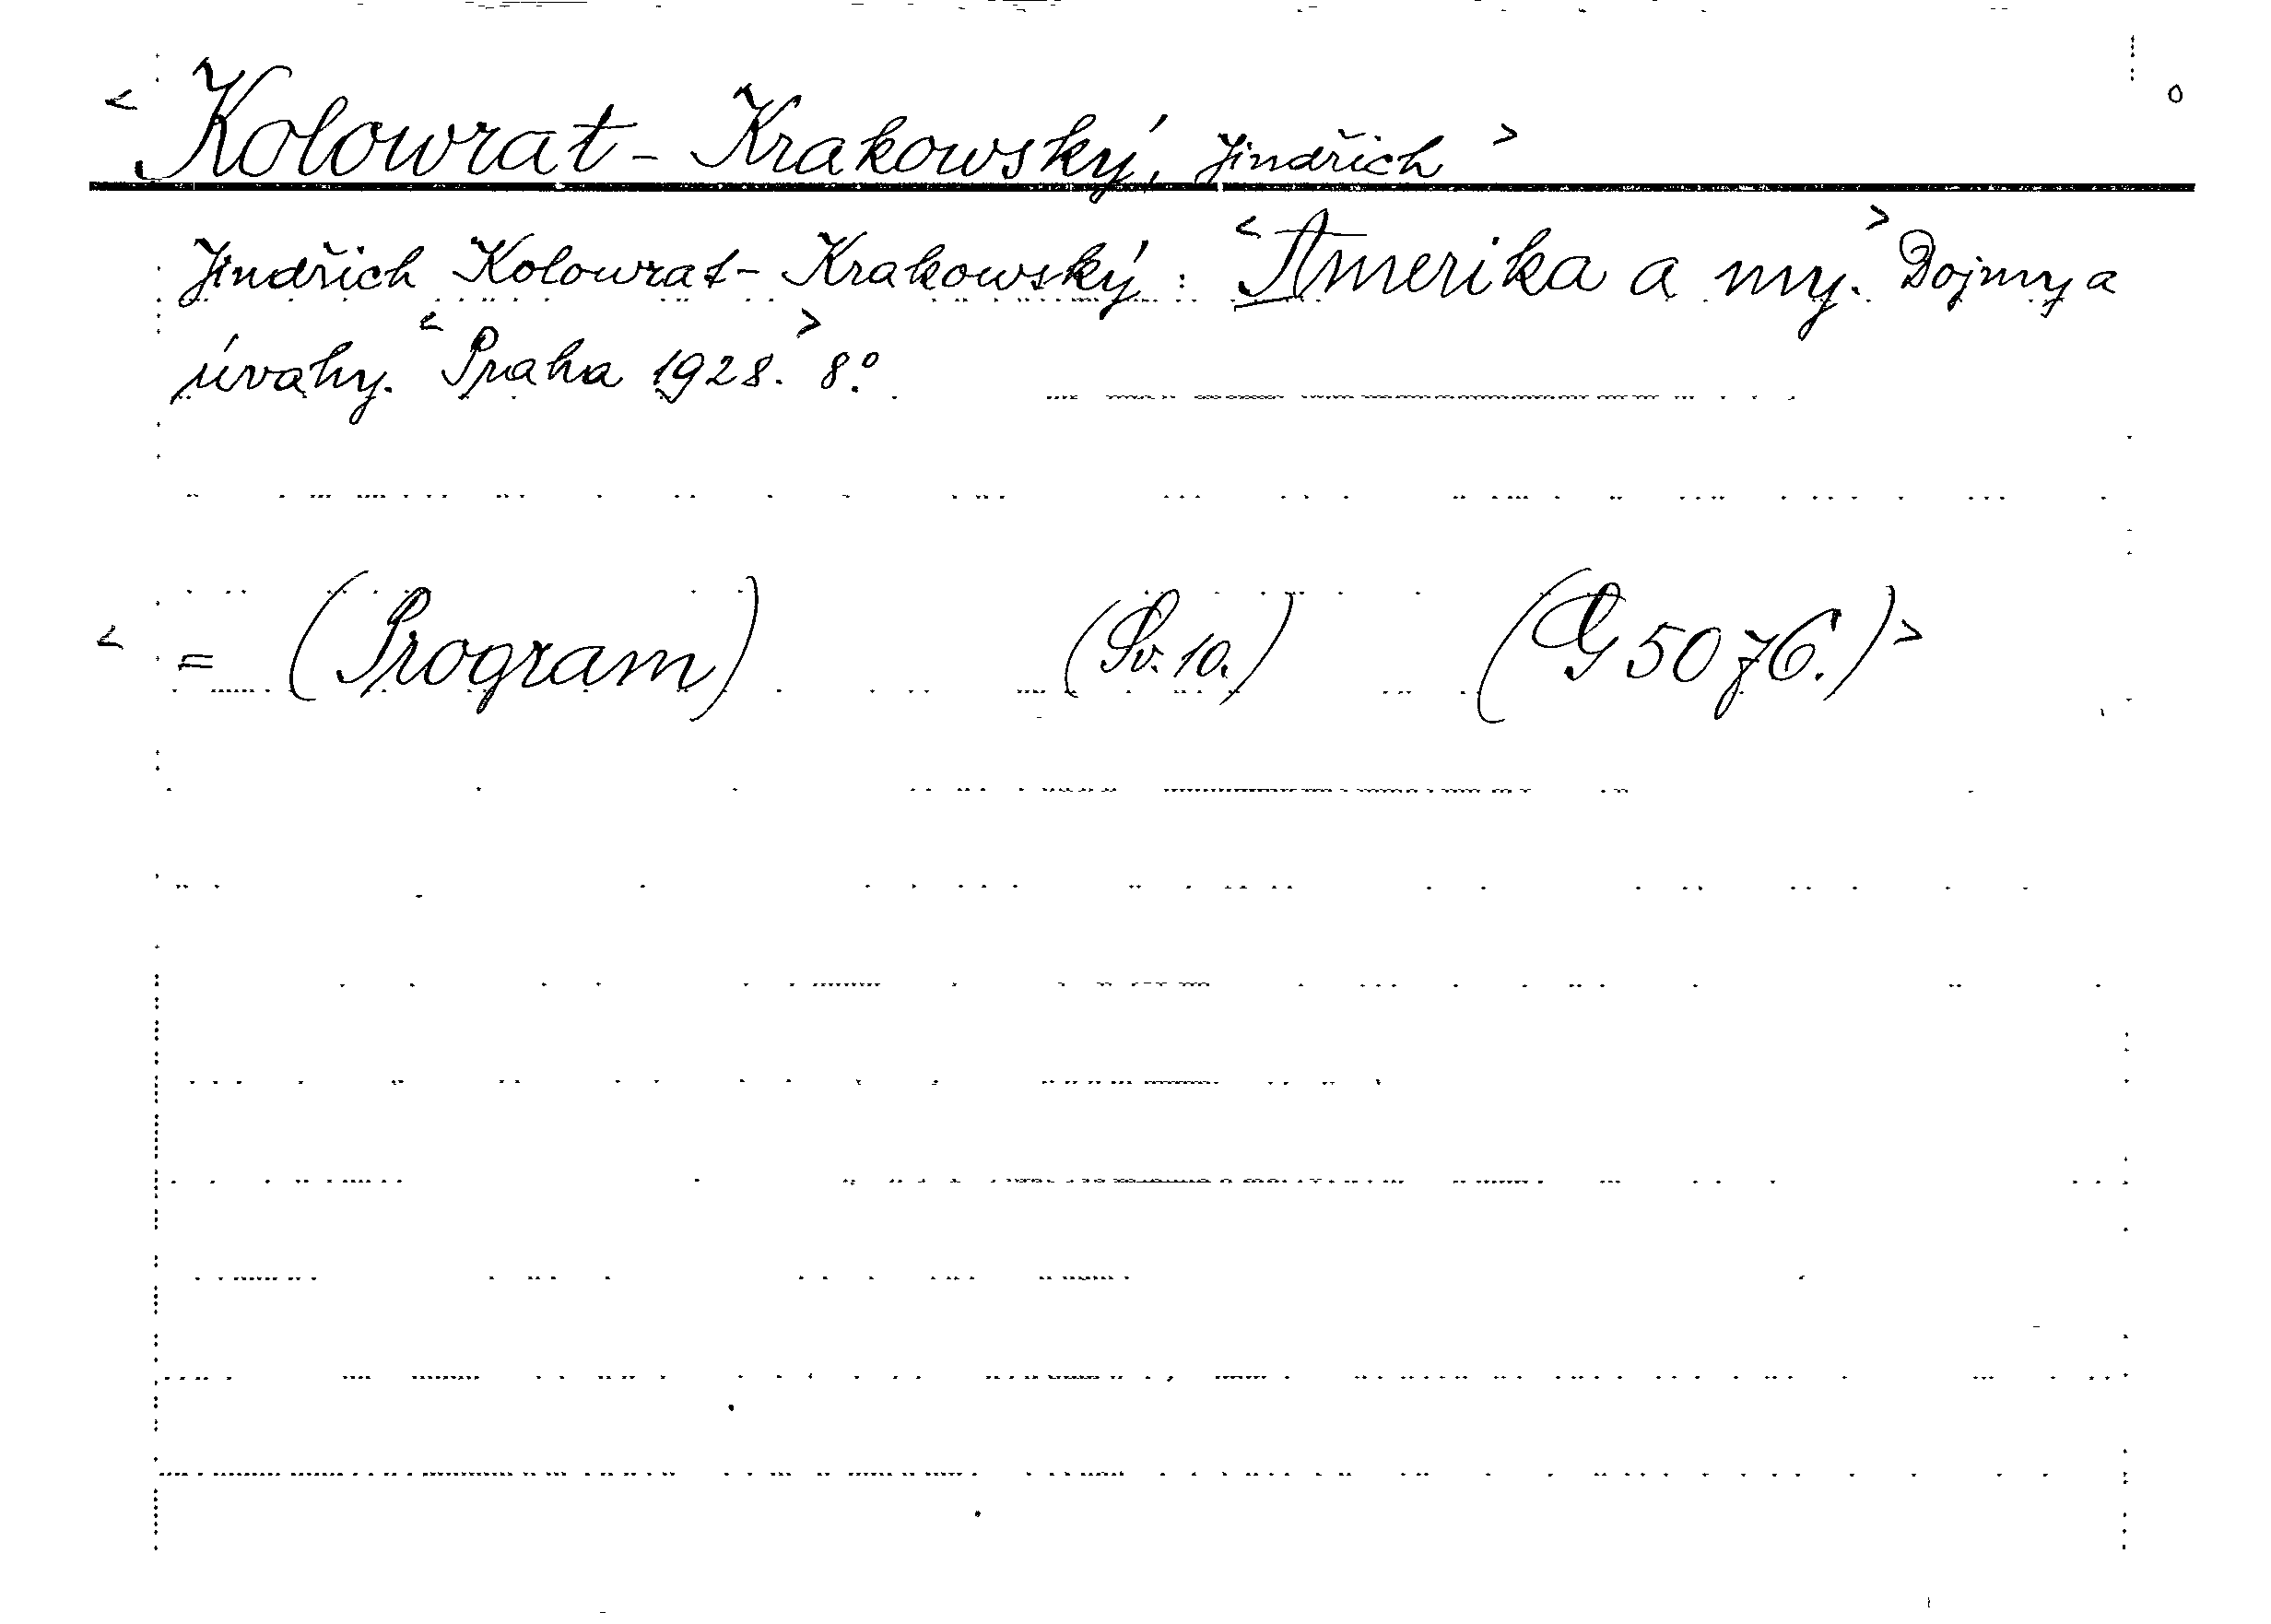 < Kolowrat - Krakowský, Jindřich > o
Jindřich Kolowrat - Krakowský : < Amerika a my. > Dojmy a
úvahy. < Praha 1928. > 8°.
< = (Program) (Sv. 10.) (G 5076.) >